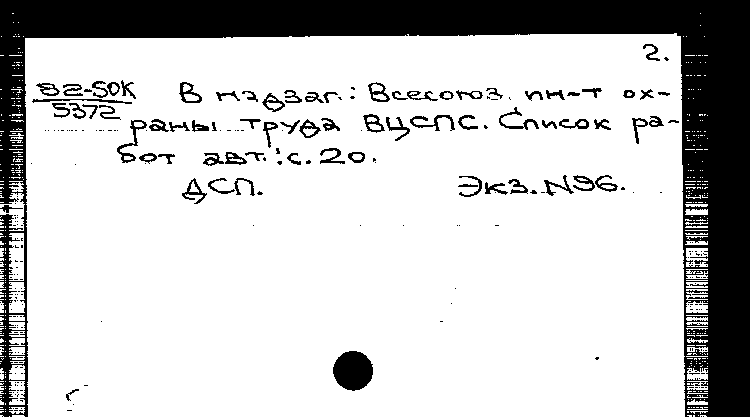 2.
82-50К В надзаг.: Всесоюз. ин-т ох-
5372 раны труда ВЦСПС. Список ра-
бот авт.: с. 20.
ДСП. Экз. N96.